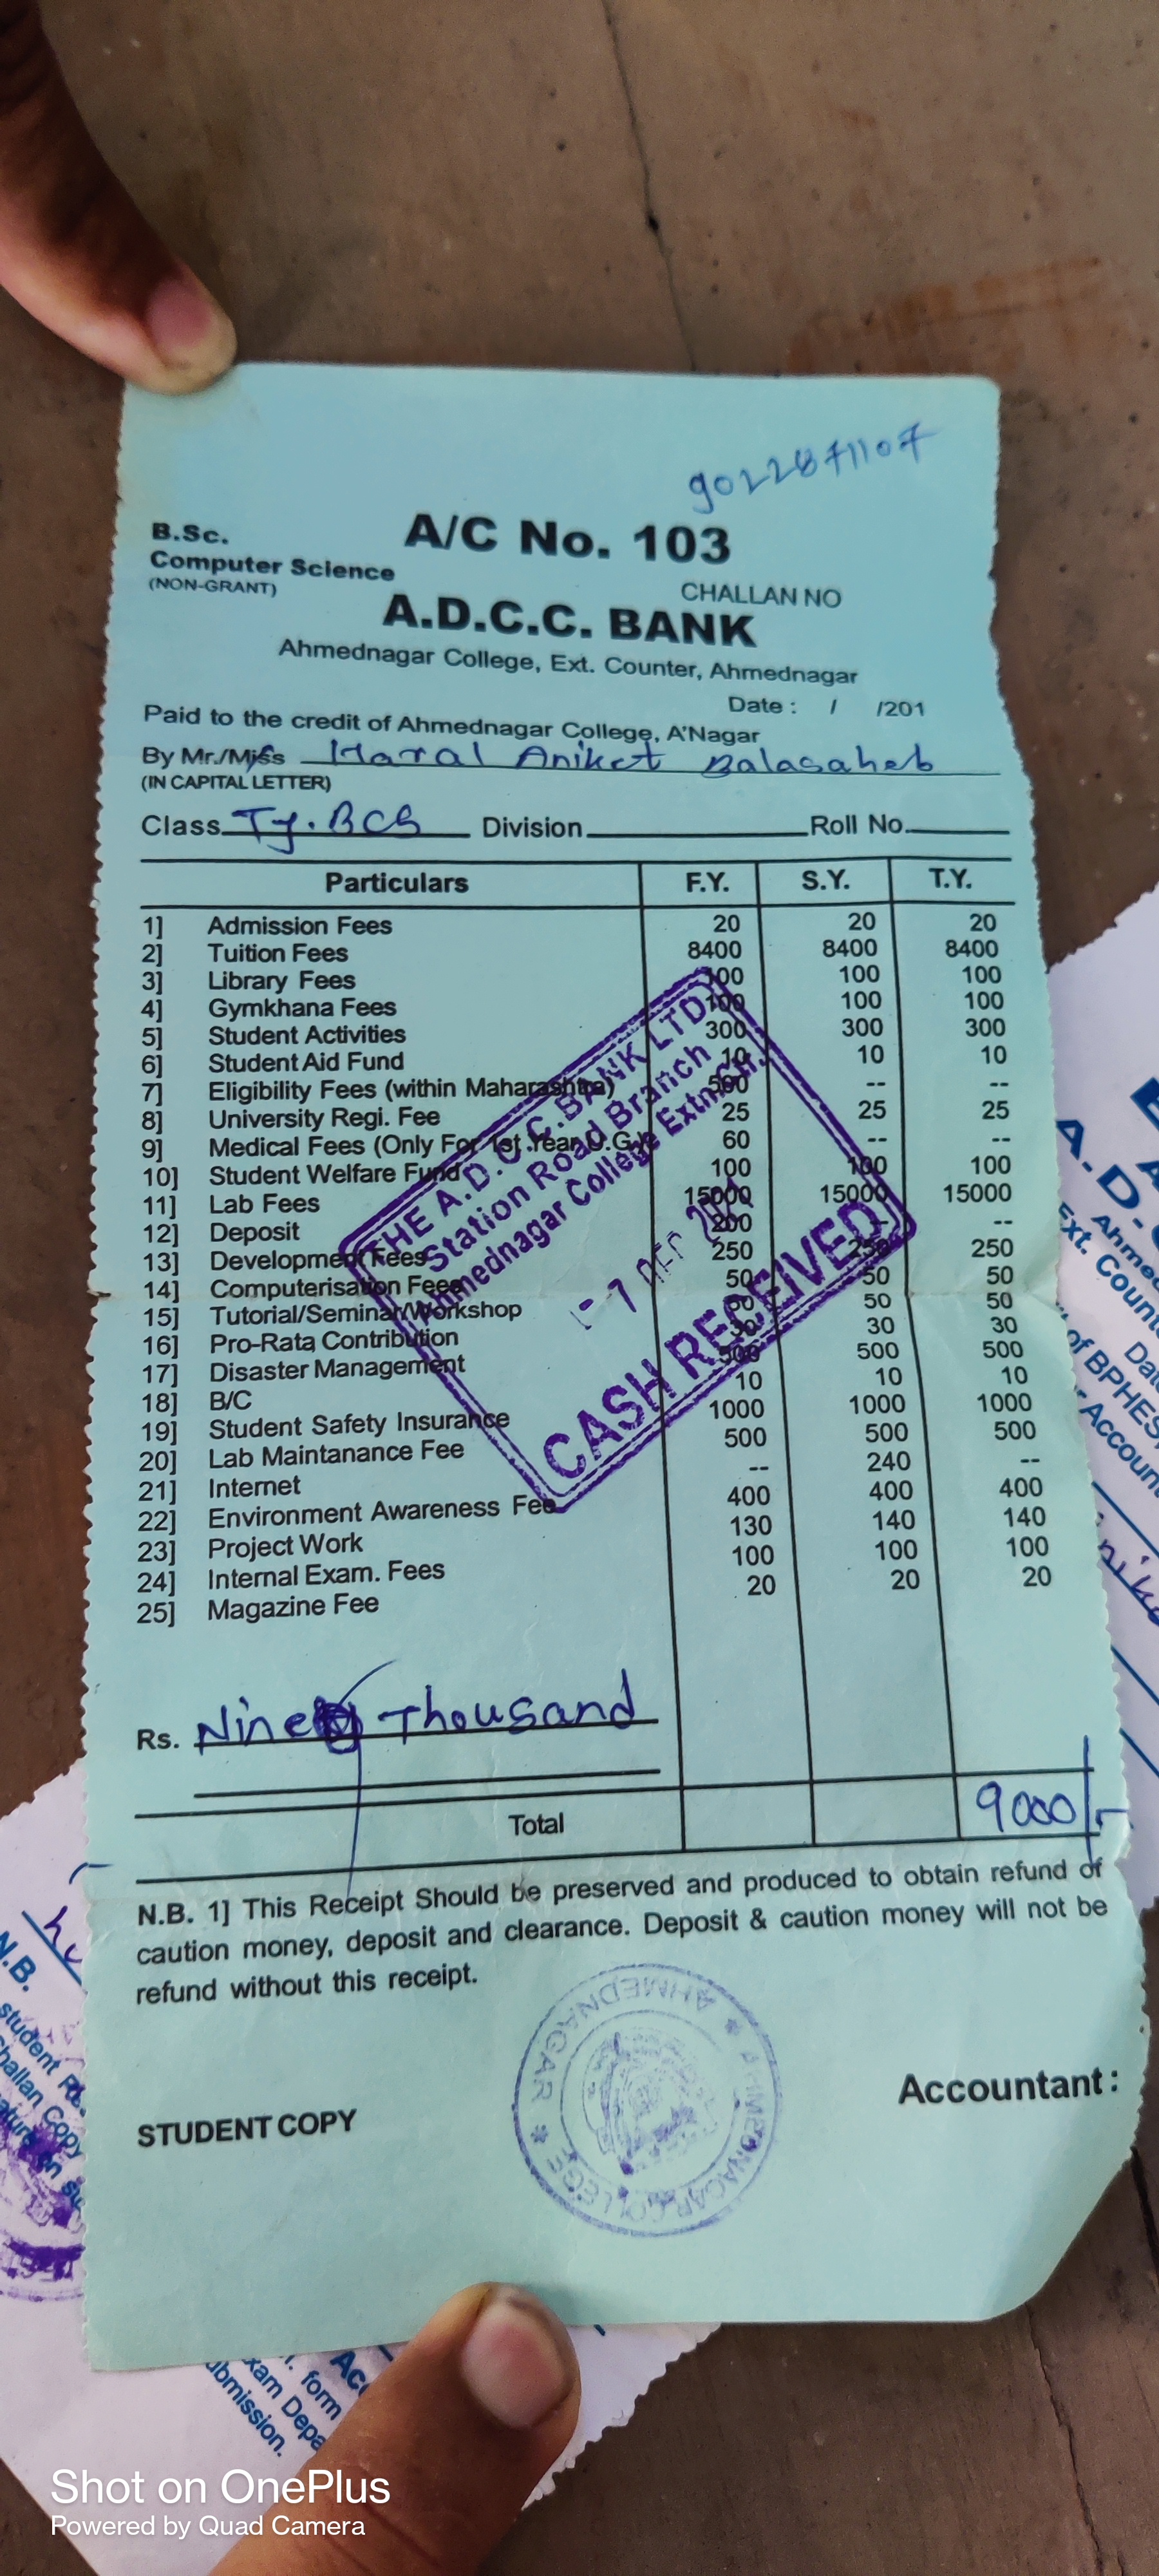 9022871107
B.Sc.
A/C No. 103
Computer Science
(NON-GRANT)
CHALLAN NO
A.D.C.C. BANK
Ahmednagar College, Ext. Counter, Ahmednagar
Date : / /201
Paid to the credit of Ahmednagar College, A'Nagar
By Mr./Miss Haral Aniket Balasaheb
(IN CAPITAL LETTER)
Class Ty.BCS Division Roll No.
Particulars F.Y. S.Y. T.Y.
1] Admission Fees 20 20 20
2] Tuition Fees 8400 8400 8400
3] Library Fees 100 100 100
4] Gymkhana Fees 100 100 100
5] Student Activities 300 300 300
6] Student Aid Fund 10 10 10
7] Eligibility Fees (within Maharashtra) 500 -- --
8] University Regi. Fee 25 25 25
9] Medical Fees (Only For 1st Year U.G.) 60 -- --
10] Student Welfare Fund 100 100 100
11] Lab Fees 15000 15000 15000
12] Deposit 200 -- --
13] Development Fees 250 250 250
14] Computerisation Fees 50 50 50
15] Tutorial/Seminar/Workshop 50 50 50
16] Pro-Rata Contribution 30 30 30
17] Disaster Management 500 500 500
18] B/C 10 10 10
19] Student Safety Insurance 1000 1000 1000
20] Lab Maintanance Fee 500 500 500
21] Internet -- 240 --
22] Environment Awareness Fee 400 400 400
23] Project Work 130 140 140
24] Internal Exam. Fees 100 100 100
25] Magazine Fee 20 20 20
THE A.D.C.C. BANK LTD.
Station Road Branch
Ahmednagar College Extn.
-7 DEC
CASH RECEIVED
Rs. Nine Thousand
Total 9000/-
N.B. 1] This Receipt Should be preserved and produced to obtain refund of
caution money, deposit and clearance. Deposit & caution money will not be
refund without this receipt.
AHMEDNAGAR COLLEGE * AHMEDNAGAR *
STUDENT COPY
Accountant :
A.D.
Ahmed
Ext. Count
Dat
of BPHES
Accoun
N.B.
student
Challan Copy
form
Exam Depa
ubmission.
Shot on OnePlus
Powered by Quad Camera